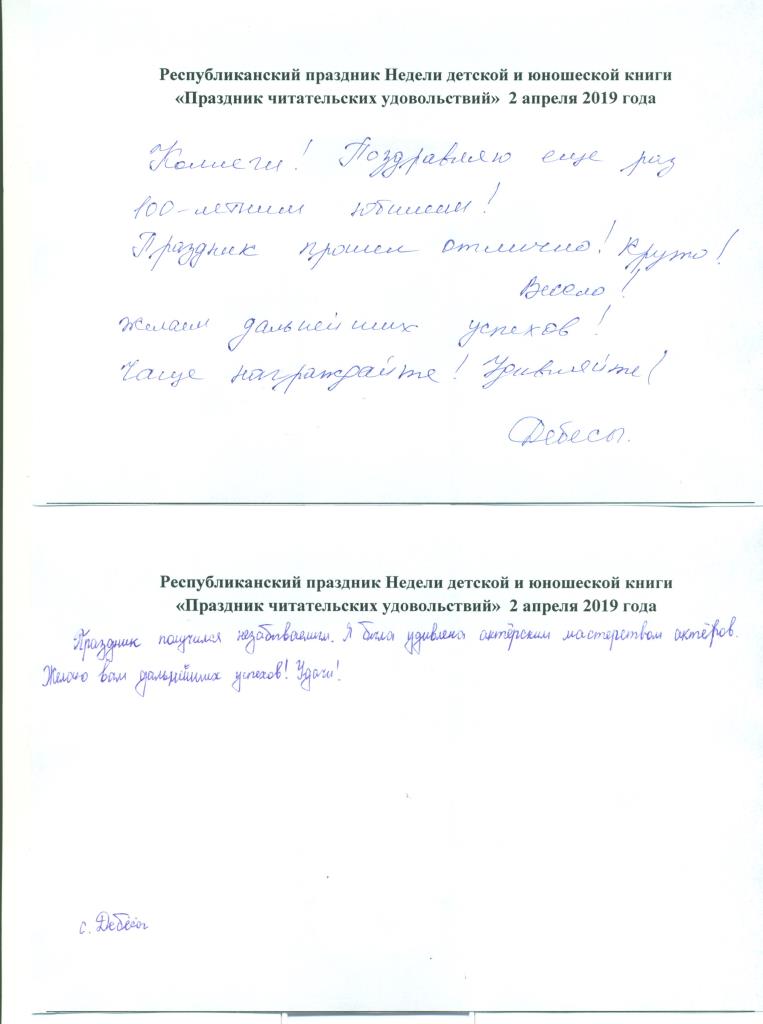 Республиканский праздник Недели детской и юношеской книги
«Праздник читательских удовольствий» 2 апреля 2019 года
Коллеги! Поздравляю еще раз
100-летним юбилеем!
Праздник прошел отлично! Круто!
Весело!
Желаем дальнейших успехов!
Чаще награждайте! Удивляйте!
Дебесы.
Республиканский праздник Недели детской и юношеской книги
«Праздник читательских удовольствий» 2 апреля 2019 года
Праздник получился незабываемым. Я была удивлена актёрским мастерством актёров.
Желаю вам дальнейших успехов! Удачи!
с. Дебёсы